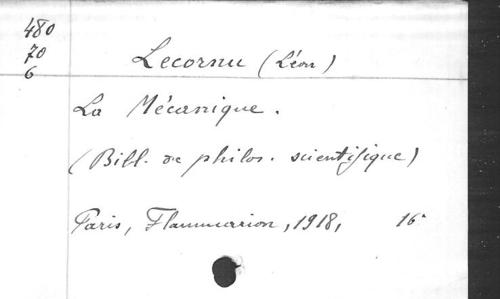 480
70
6
Lecornu (Léon)
La Mécanique.
(Bibl. de philos. scientifique)
Paris, Flammarion, 1918, 16°